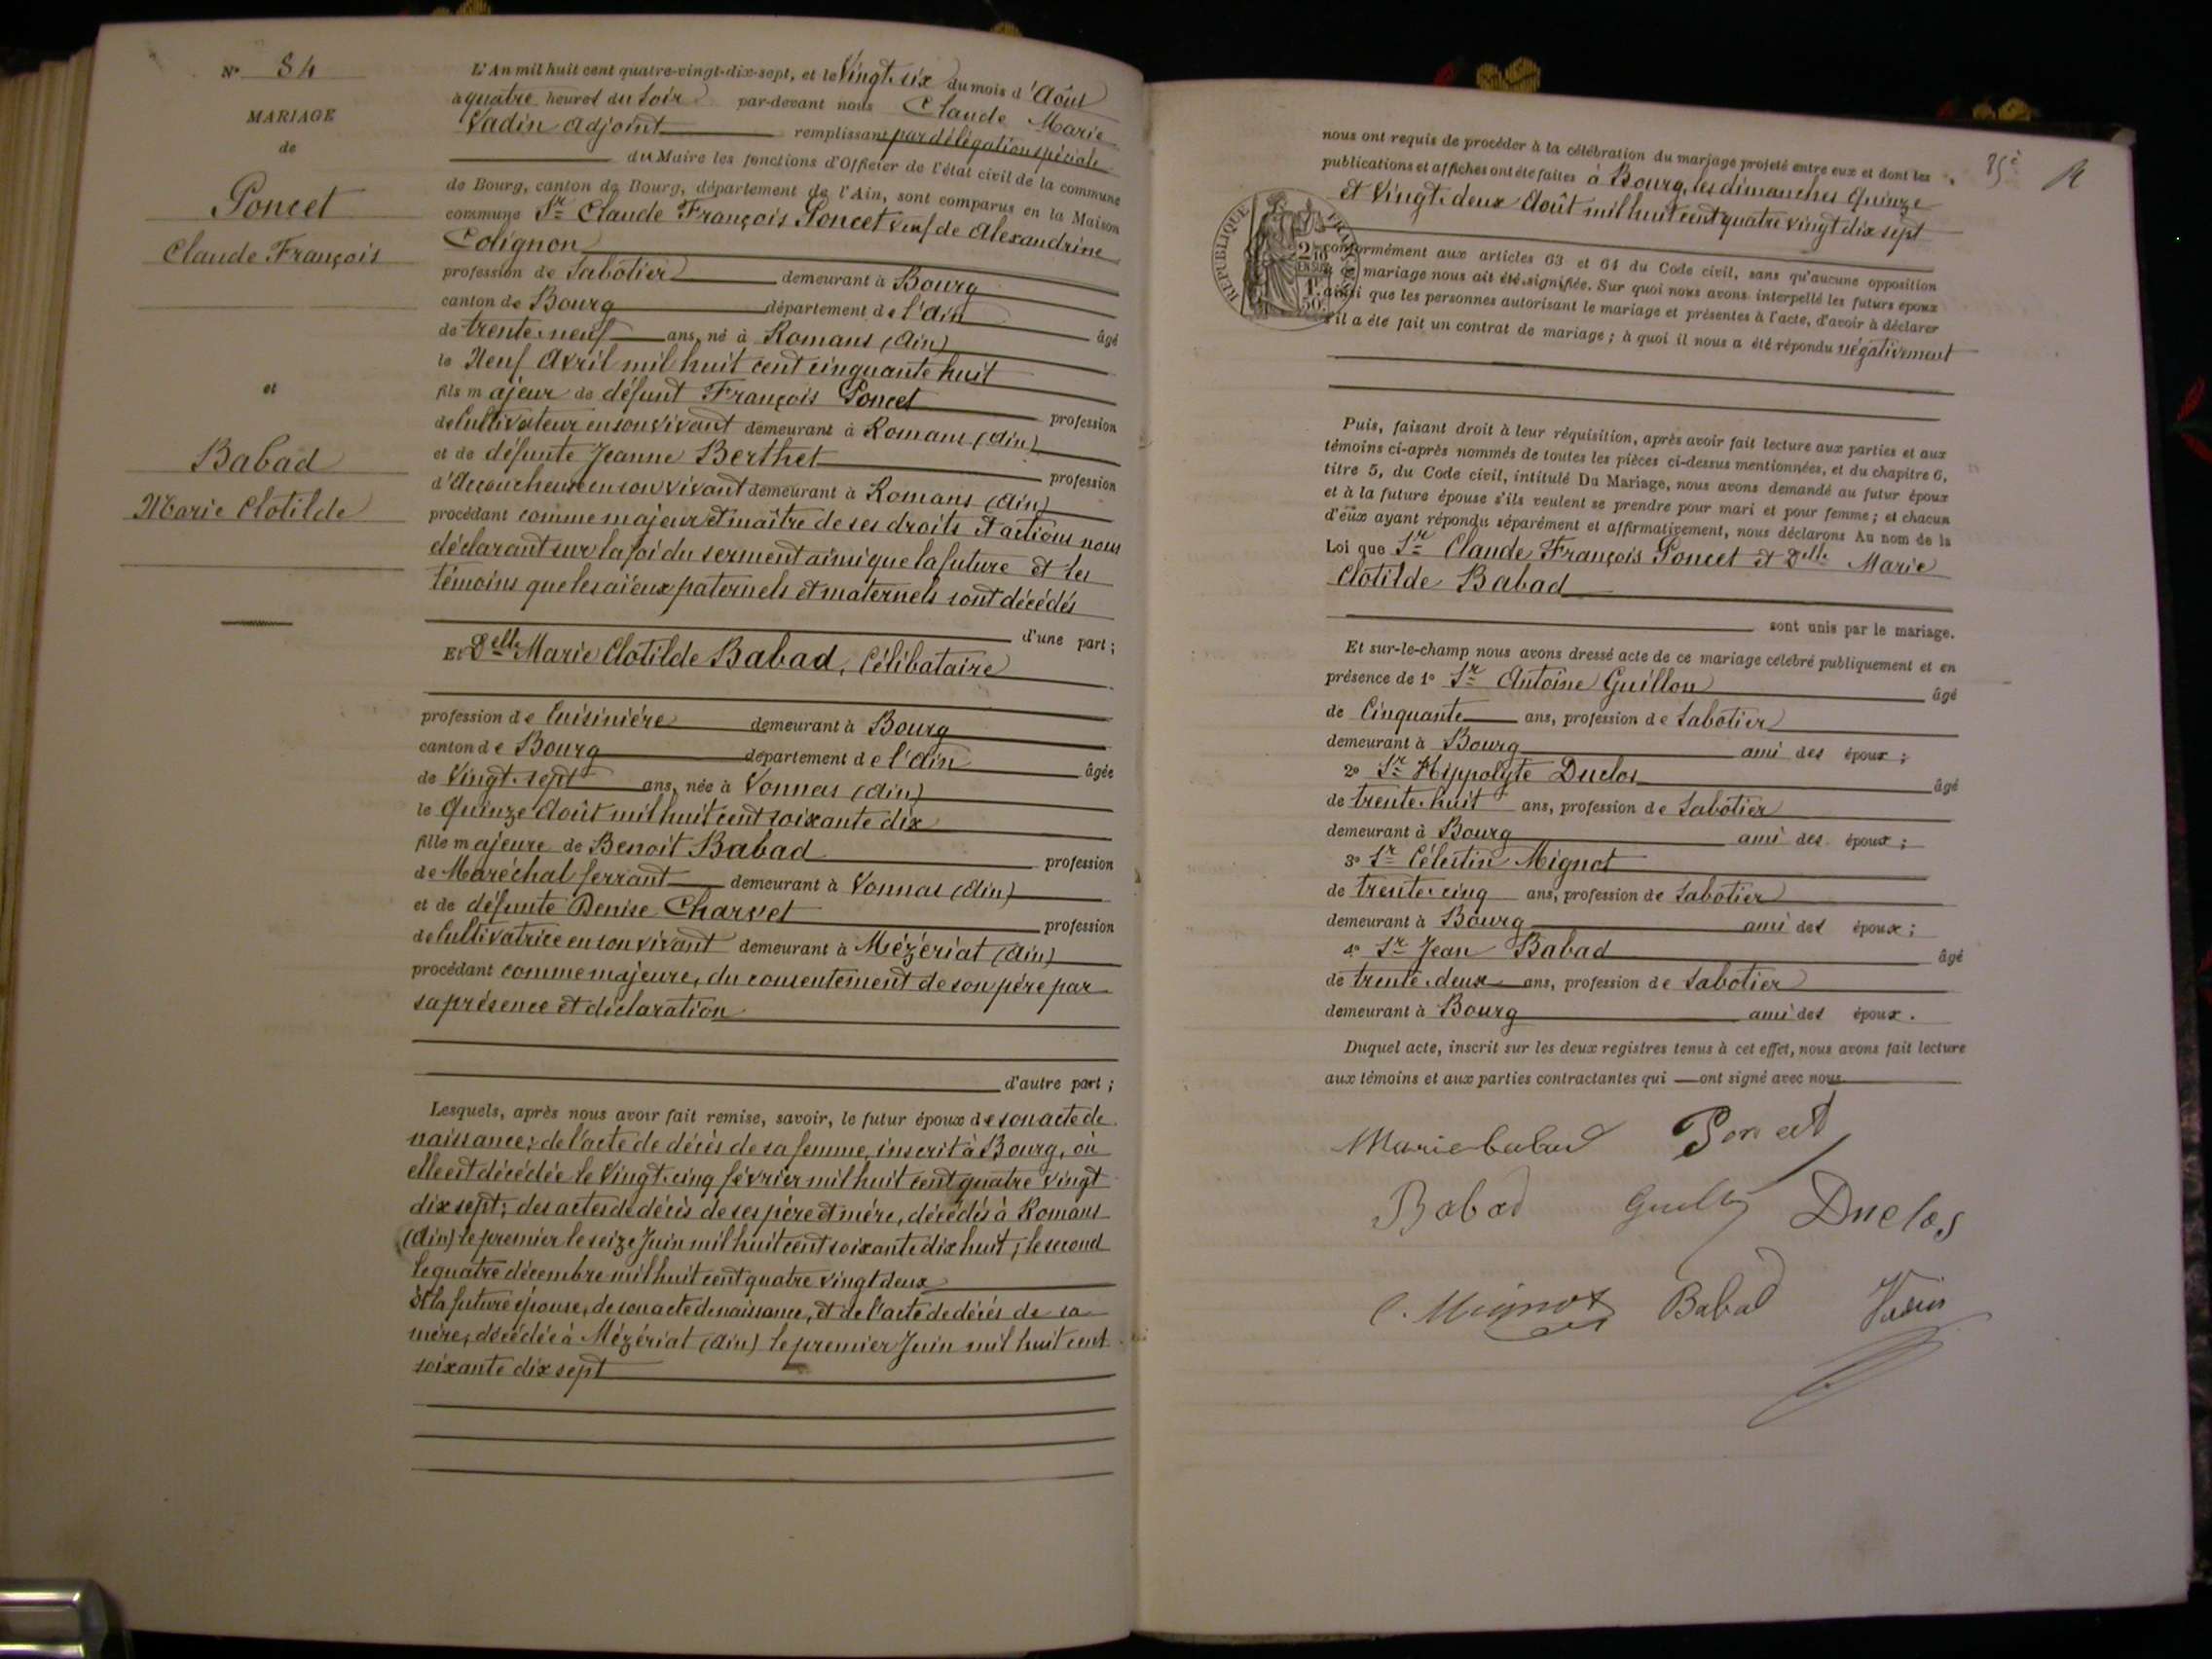 N° 84
MARIAGE
de
Poncet
Claude François
et
Babad
Marie Clotilde
L'An mil huit cent quatre-vingt-dix-sept, et le Vingt-six du mois d'Août
à quatre heures du soir par-devant nous Claude Marie
Vadin adjoint remplissant par délégation spéciale
du Maire les fonctions d'Officier de l'état civil de la commune
de Bourg, canton de Bourg, département de l'Ain, sont comparus en la Maison
commune Sr Claude François Poncet veuf de Alexandrine
Colignon
profession de Sabotier demeurant à Bourg
canton de Bourg département de l'Ain âgé
de trente-neuf ans, né à Romans (Ain)
le Neuf Avril mil huit cent cinquante huit
fils majeur de défunt François Poncet profession
de Cultivateur en son vivant demeurant à Romans (Ain)
et de défunte Jeanne Berthet profession
d'Accoucheuse en son vivant demeurant à Romans (Ain)
procédant comme majeur et maître de ses droits et actions nous
déclarant sur la foi du serment ainsi que la future et les
témoins que les aïeux paternels et maternels sont décédés
d'une part;
Et Delle Marie Clotilde Babad, Célibataire
profession de Cuisinière demeurant à Bourg
canton de Bourg département de l'Ain âgée
de Vingt-sept ans, née à Vonnas (Ain)
le Quinze Août mil huit cent soixante dix
fille majeure de Benoit Babad profession
de Maréchal ferrant demeurant à Vonnas (Ain)
et de défunte Denise Charvet profession
de Cultivatrice en son vivant demeurant à Mézériat (Ain)
procédant comme majeure, du consentement de son père par
sa présence et déclaration
d'autre part;
Lesquels, après nous avoir fait remise, savoir, le futur époux de son acte de
naissance; de l'acte de décès de sa femme, inscrit à Bourg, où
elle est décédée le Vingt-cinq février mil huit cent quatre vingt
dix sept; des actes de décès de ses père et mère, décédés à Romans
(Ain) le premier le seize Juin mil huit cent soixante dix huit; le second
le quatre décembre mil huit cent quatre vingt deux
Et la future épouse, de son acte de naissance, et de l'acte de décès de sa
mère, décédée à Mézériat (Ain) le premier Juin mil huit cent
soixante dix sept
85e
nous ont requis de procéder à la célébration du mariage projeté entre eux et dont les
publications et affiches ont été faites à Bourg, les dimanches Quinze
et Vingt-deux Août mil huit cent quatre vingt dix sept
RÉPUBLIQUE FRANÇAISE
2/10 EN SUS
1F. 50c
conformément aux articles 63 et 64 du Code civil, sans qu'aucune opposition
à ce mariage nous ait été signifiée. Sur quoi nous avons interpellé les futurs époux
ainsi que les personnes autorisant le mariage et présentes à l'acte, d'avoir à déclarer
s'il a été fait un contrat de mariage; à quoi il nous a été répondu négativement
Puis, faisant droit à leur réquisition, après avoir fait lecture aux parties et aux
témoins ci-après nommés de toutes les pièces ci-dessus mentionnées, et du chapitre 6,
titre 5, du Code civil, intitulé Du Mariage, nous avons demandé au futur époux
et à la future épouse s'ils veulent se prendre pour mari et pour femme; et chacun
d'eux ayant répondu séparément et affirmativement, nous déclarons Au nom de la
Loi que Sr Claude François Poncet et Delle Marie
Clotilde Babad
sont unis par le mariage.
Et sur-le-champ nous avons dressé acte de ce mariage célébré publiquement et en
présence de 1° Sr Antoine Guillon âgé
de Cinquante ans, profession de Sabotier
demeurant à Bourg ami des époux;
2° Sr Hippolyte Duclos âgé
de trente-huit ans, profession de Sabotier
demeurant à Bourg ami des époux;
3° Sr Célestin Mignot
de trente-cinq ans, profession de Sabotier
demeurant à Bourg ami des époux;
4° Sr Jean Babad âgé
de trente-deux ans, profession de Sabotier
demeurant à Bourg ami des époux.
Duquel acte, inscrit sur les deux registres tenus à cet effet, nous avons fait lecture
aux témoins et aux parties contractantes qui ont signé avec nous.
Marie babad Poncet
Babad Guillon Duclos
C. Mignot Babad Vadin